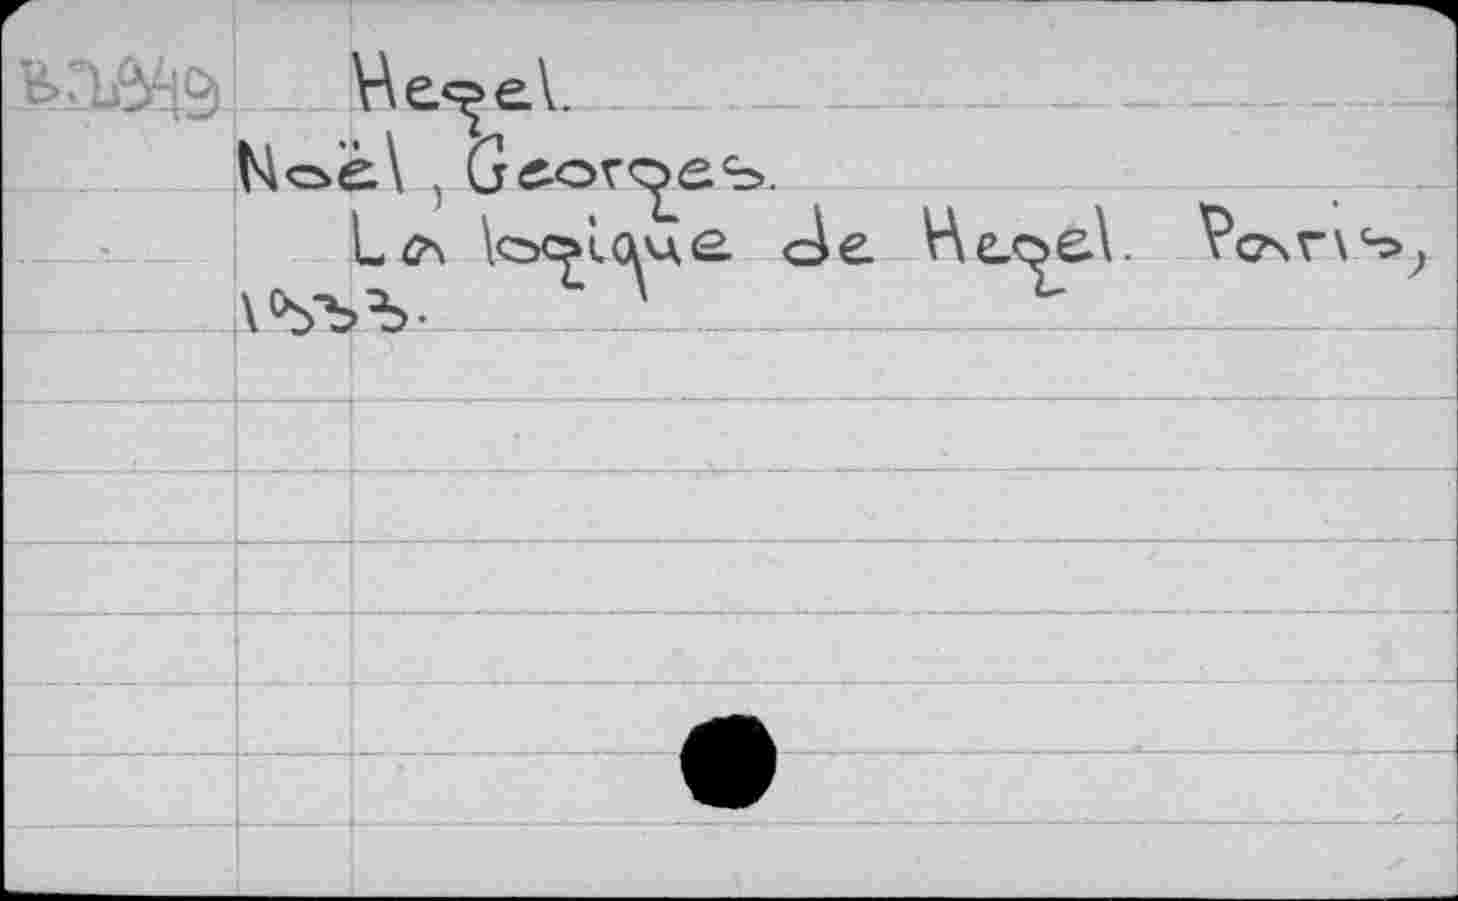 Hegel.
Noël, Georges.
La logique de Hegel. Paris,
1933.